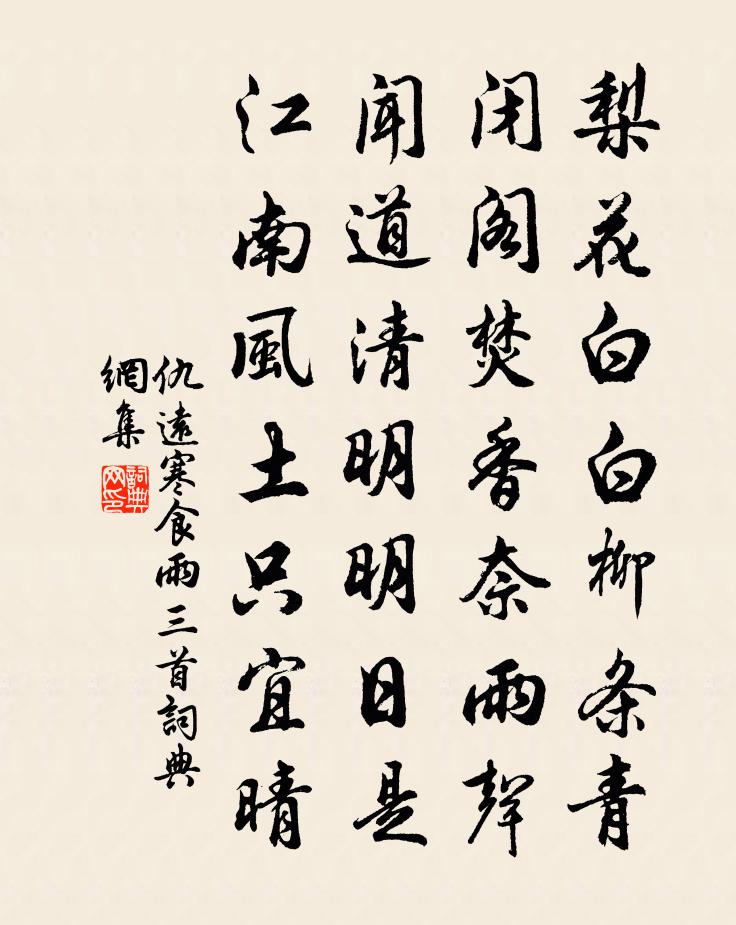 梨花白白柳条青
闭阁焚香奈雨聲
闻道清明明日是
江南風土只宜晴
仇遠寒食雨三首詞典
網集
詞典
网印